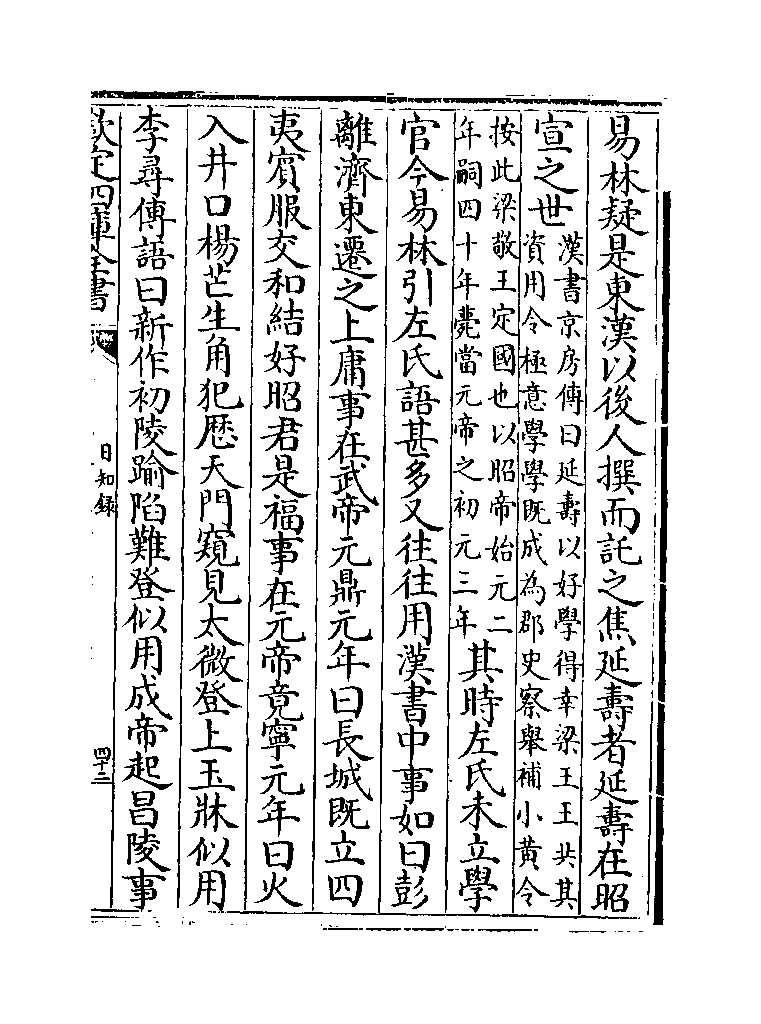 易林疑是東漢以後人撰而託之焦延壽者延壽在昭
宣之世漢書京房傳曰延壽以好學得幸梁王王共其
資用令極意學學既成為郡史察舉補小黃令
按此梁敬王定國也以昭帝始元二
年嗣四十年薨當元帝之初元三年其時左氏未立學
官今易林引左氏語甚多又往往用漢書中事如曰彭
離濟東遷之上庸事在武帝元鼎元年曰長城既立四
夷賓服交和結好昭君是福事在元帝竟寧元年曰火
入井口楊芒生角犯歷天門窺見太微登上玉牀似用
李尋傳語曰新作初陵踰陷難登似用成帝起昌陵事
欽定四庫全書
日知錄
四十二